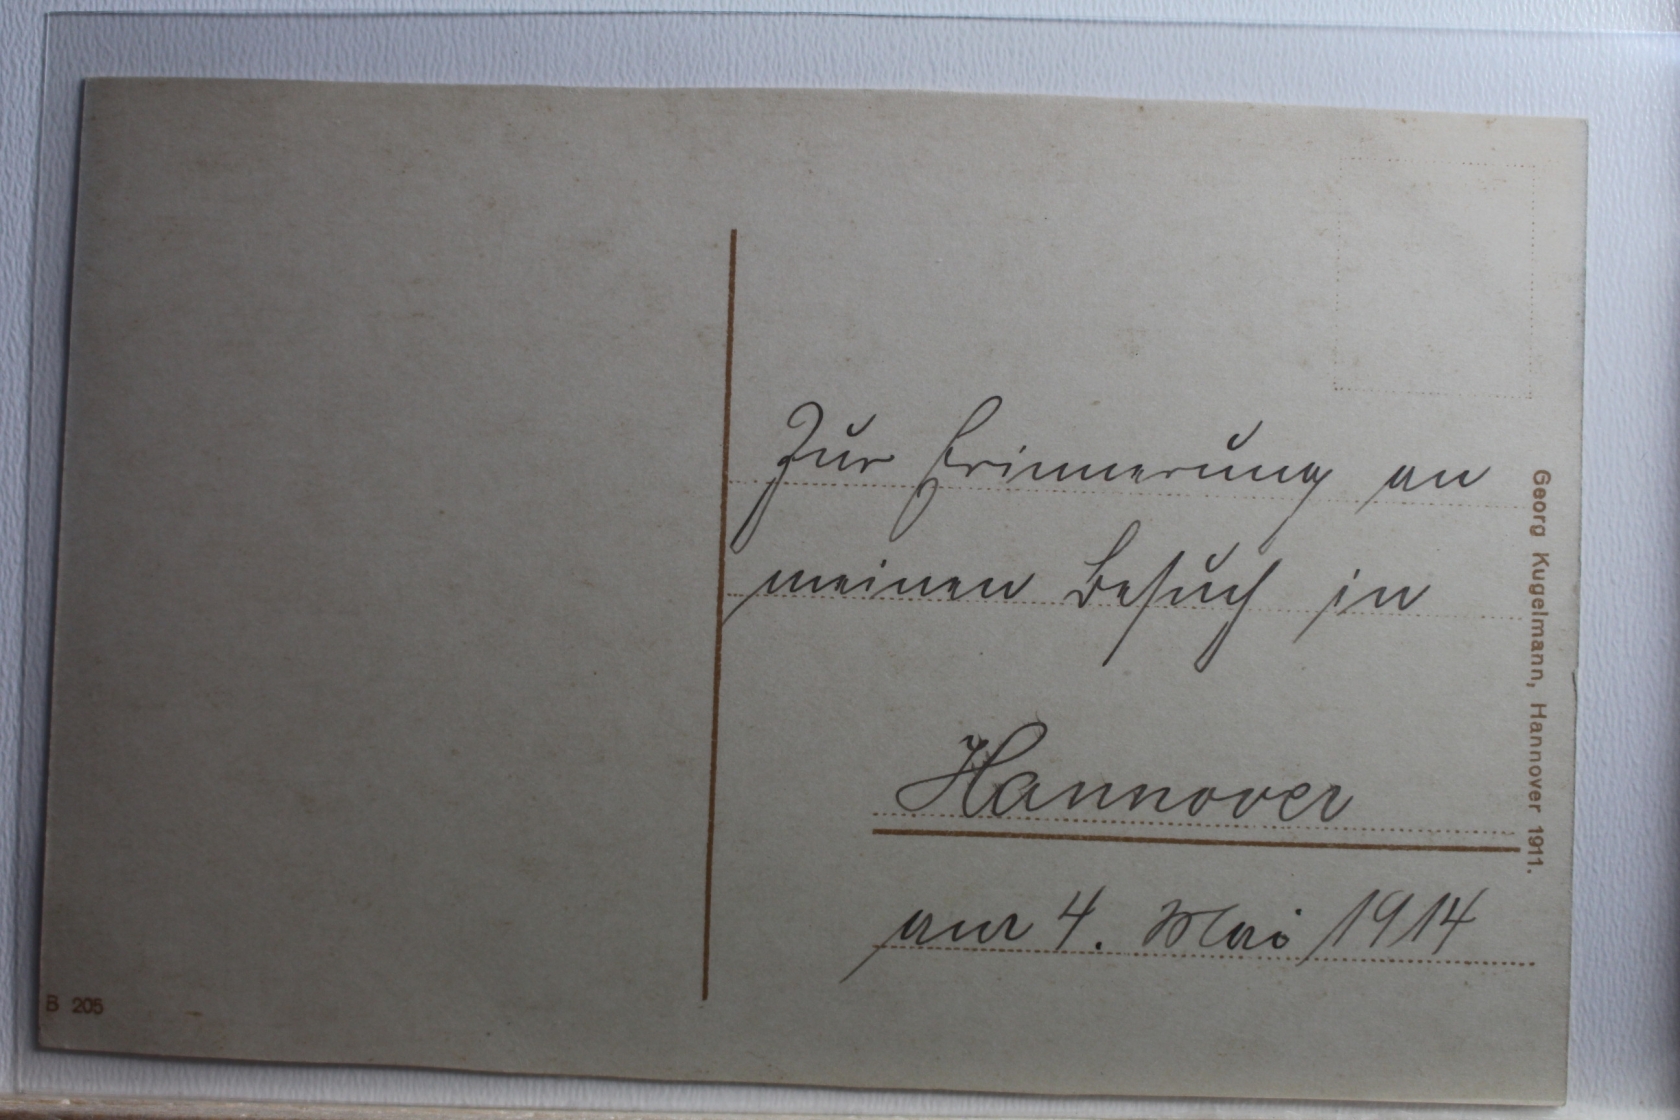 Zur Erinnerung an
meinen Besuch in
Hannover
am 4. Mai 1914
Georg Kugelmann, Hannover 1911.
B 205